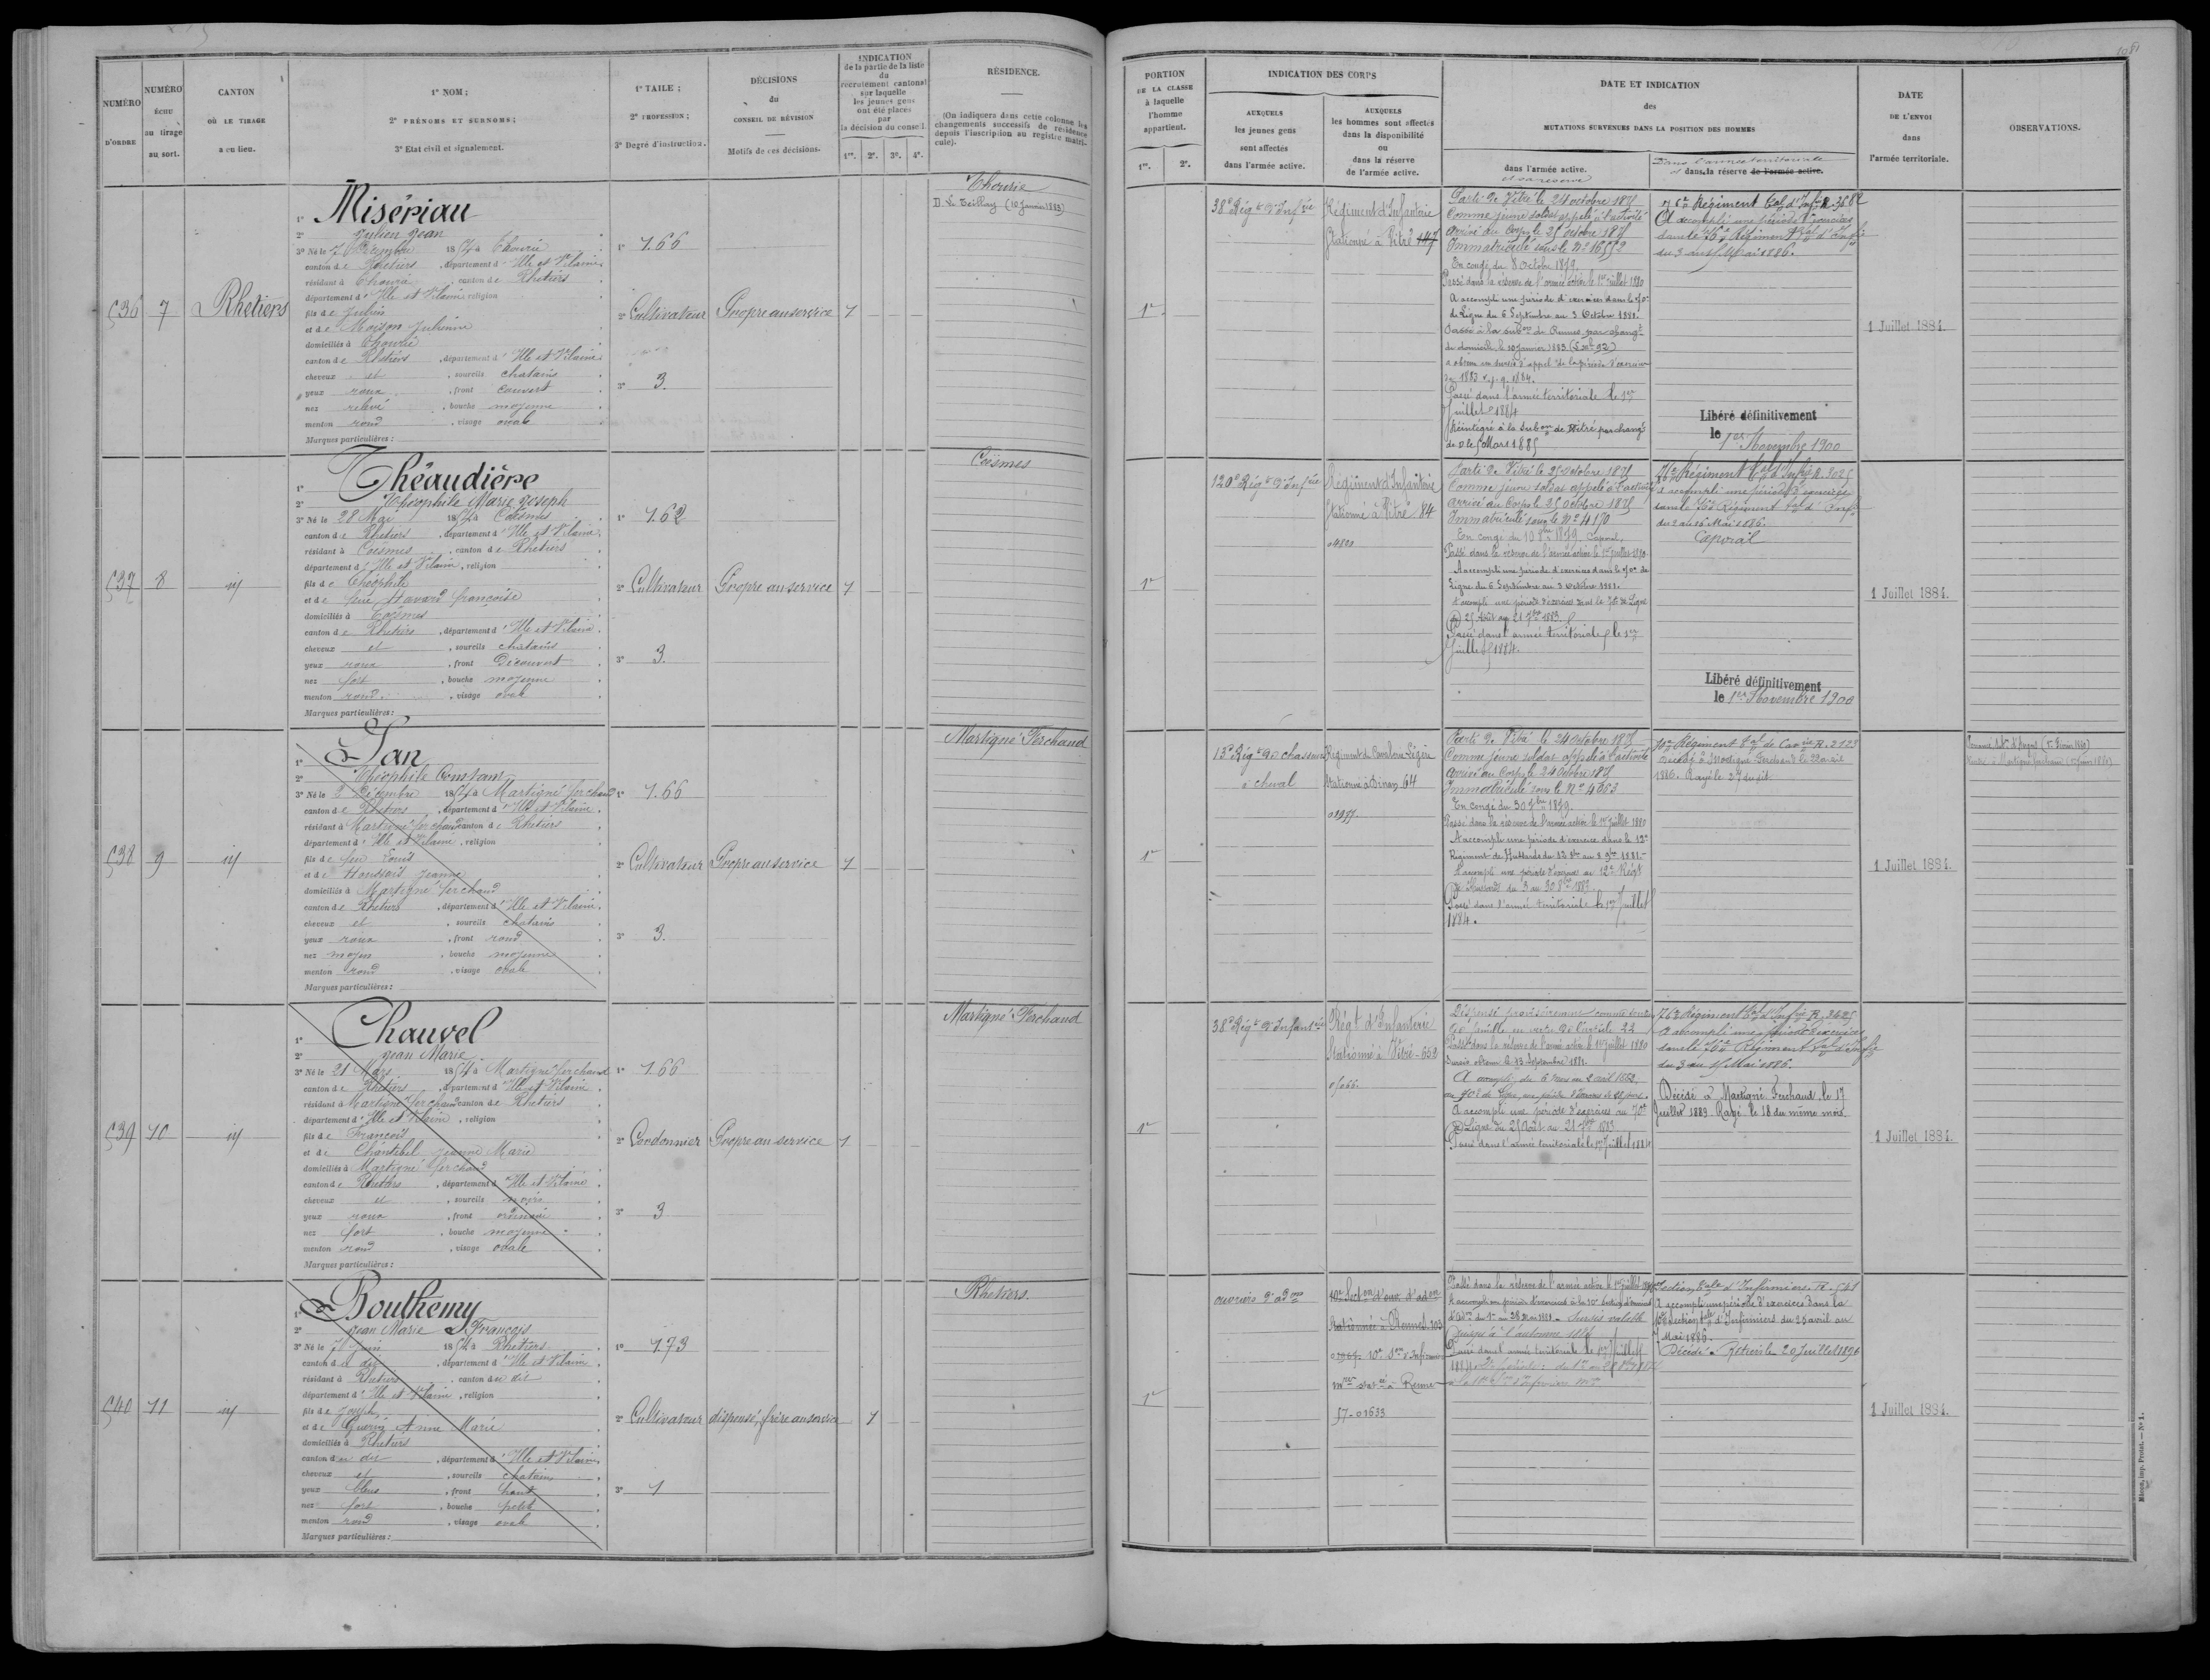 NUMÉRO
D'ORDRE
NUMÉRO
échu
au tirage
au sort.
CANTON
OÙ LE TIRAGE
a eu lieu.
1° NOM ;
2° PRÉNOMS ET SURNOMS ;
3° Etat civil et signalement.
1° TAILE ;
2° PROFESSION ;
3° Degré d'instruction.
DÉCISIONS
du
CONSEIL DE RÉVISION
Motifs de ces décisions.
INDICATION
de la partie de la liste
du
recrutement cantonal
sur laquelle
les jeunes gens
ont été placés
par
la décision du conseil.
1re. 2e. 3e. 4e.
RÉSIDENCE.
(On indiquera dans cette colonne les
changements successifs de résidence
depuis l'inscription au registre matri-
cule).
536
7
Rhetiers
1° Misériau
2° Julien Jean
3° Né le 7 1854 à Thourie
canton de Rhetiers, département d'Ille et Vilaine
résidant à Thourie, canton de Rhetiers
département d'Ille et Vilaine, religion
fils de Julien
et de Moison Julienne
domiciliés à Thourie
canton de Rhetiers, département d'Ille et Vilaine
cheveux et, sourcils chatains
yeux roux, front couvert
nez relevé, bouche moyenne
menton rond, visage ovale
Marques particulières :
1° 1.66
2° Cultivateur
3° 3.
Propre au service
1
Thourie
D. Le Teillay (10 Janvier 1883)
537
8
id
1° Théaudière
2° Théophile Marie Joseph
3° Né le 28 Mai 1854 à Coësmes
canton de Rhetiers, département d'Ille et Vilaine
résidant à Coësmes, canton de Rhetiers
département d'Ille et Vilaine, religion
fils de Théophile
et de feue Havard françoise
domiciliés à Coësmes
canton de Rhetiers, département d'Ille et Vilaine
cheveux et, sourcils chatains
yeux roux, front Découvert
nez fort, bouche moyenne
menton rond, visage ovale
Marques particulières :
1° 1.62
2° Cultivateur
3° 3.
Propre au service
1
Coësmes
538
9
id
1° Jan
2° Théophile Constant
3° Né le 2 Décembre 1854 à Martigné ferchaud
canton de Rhetiers, département d'Ille et Vilaine
résidant à Martigné ferchaud canton de Rhetiers
département d'Ille et Vilaine, religion
fils de feu Louis
et de Houssois Jeanne
domiciliés à Martigné ferchaud
canton de Rhetiers, département d'Ille et Vilaine
cheveux et, sourcils chatains
yeux roux, front rond
nez moyen, bouche moyenne
menton rond, visage ovale
Marques particulières :
1° 1.66
2° Cultivateur
3° 3.
Propre au service
1
Martigné Ferchaud
539
10
id
1° Chauvel
2° Jean Marie
3° Né le 21 Mars 1854 à Martigné ferchaud
canton de Rhetiers, département d'Ille et Vilaine
résidant à Martigné ferchaud canton de Rhetiers
département d'Ille et Vilaine, religion
fils de François
et de Chantebel Jeanne Marie
domiciliés à Martigné ferchaud
canton de Rhetiers, département d'Ille et Vilaine
cheveux et, sourcils noirs
yeux roux, front ordinaire
nez fort, bouche moyenne
menton rond, visage ovale
Marques particulières :
1° 1.66
2° Cordonnier
3° 3
Propre au service
1
Martigné Ferchaud
540
11
id
1° Bouthemy
2° Jean Marie François
3° Né le Juin 1854 à Rhetiers
canton du dit, département d'Ille et Vilaine
résidant à Rhetiers, canton du dit
département d'Ille et Vilaine, religion
fils de Joseph
et de Guérin Anne Marie
domiciliés à Rhetiers
canton du dit, département d'Ille et Vilaine
cheveux et, sourcils chatains
yeux bleus, front haut
nez fort, bouche petite
menton rond, visage ovale
Marques particulières :
1° 1.73
2° Cultivateur
3° 1
dispensé, frère au service
1
Rhetiers.
PORTION
DE LA CLASSE
à laquelle
l'homme
appartient.
1re. 2e.
INDICATION DES CORPS
AUXQUELS
les jeunes gens
sont affectés
dans l'armée active.
AUXQUELS
les hommes sont affectés
dans la disponibilité
ou
dans la réserve
de l'armée active.
DATE ET INDICATION
des
MUTATIONS SURVENUES DANS LA POSITION DES HOMMES
dans l'armée active.
et sa réserve
Dans l'armée territoriale
et dans la réserve de l'armée active.
DATE
DE L'ENVOI
dans
l'armée territoriale.
OBSERVATIONS.
1re
38e Régt d'Infrie
Régiment d'Infanterie
Stationné à Vitré 147
Parti de Vitré le 24 octobre 1875
Comme jeune soldat appelé à l'activité
Arrivé au Corps le 25 octobre 1875
Immatriculé sous le N° 16552
En congé du 8 Octobre 1879.
Passé dans la réserve de l'armée active le 1er juillet 1880
A accompli une période d'exercices dans le 70e
de Ligne du 6 Septembre au 3 Octobre 1881.
Passé à la subon de Rennes par changt
de domicile le 10 Janvier 1883
a obtenu un sursis d'appel de la période d'exercices
Passé dans l'armée territoriale le 1er
Juillet 1884
Réintégré à la Subon de Vitré par changt
de D le 5 Mars 1885
76e Régiment tal d'Infie R. 3682
A accompli une période d'exercices
dans le 76e Régiment tal d'Infie
du 3 au 15 Mai 1886.
Libéré définitivement
le 1er Novembre 1900
1 Juillet 1884.
1re
120e Régt d'Infrie
Régiment d'Infanterie
Stationné à Vitré 84
04820
Parti de Vitré le 25 octobre 1875
Comme jeune soldat appelé à l'activité
Arrivé au Corps le 25 Octobre 1875
Immatriculé sous le N° 4150
En congé du 10 8bre 1879. Caporal.
Passé dans la réserve de l'armée active le 1er juillet 1880
A accompli une période d'exercices dans le 70e de
Ligne du 6 Septembre au 3 Octobre 1881.
A accompli une période d'exercices dans le 70e de Ligne
du 25 Août au 21 7bre 1883.
Passé dans l'armée territoriale le 1er
Juillet 1884.
76e Régiment tal d'Infie R. 3025
a accompli une période d'exercices
dans le 76e Régiment tal d'Infie
du 2 au 16 Mai 1886.
Caporal
Libéré définitivement
le 1er Novembre 1900
1 Juillet 1884.
1re
13e Régt de chasseurs
à cheval
Régiment de Cavalerie Légère
Stationné à Dinan 64
01977
Parti de Vitré le 24 octobre 1875
Comme jeune soldat appelé à l'activité
Arrivé au Corps le 24 Octobre 1875
Immatriculé sous le N° 4663
En congé du 30 7bre 1879.
Passé dans la réserve de l'armée active le 1er Juillet 1880
A accompli une période d'exercice dans le 12e
Régiment de Hussards du 12 8bre au 8 9bre 1881.
A accompli une période d'exercices au 12e Régt
de Hussards du 3 au 30 8bre 1883.
Passé dans l'armée territoriale le 1er Juillet
1884.
10e Régiment tal de Cavie R. 2123
Décédé à Martigné Ferchaud le 22 avril
1886. Rayé le 27 du dit.
1 Juillet 1884.
1re
38e Régt d'Infantie
Régt d'Infanterie
Stationné à Vitré - 652
05066
Dispensé provisoirement comme soutien
de famille en vertu de l'article 22
Passé dans la réserve de l'armée active le 1er juillet 1880
Sursis obtenu le 23 Septembre 1881.
A accompli du 6 Mars au 2 avril 1882
au 70e de Ligne une période d'exercices de 28 jours.
A accompli une période d'exercices au 70e
de Ligne du 25 Août au 21 7bre 1883
Passé dans l'armée territoriale le 1er Juillet 1884
76e Régiment tal d'Infie R. 2625
A accompli une période d'exercices
dans le 76e Régiment tal d'Infie
du 3 au 15 Mai 1886.
Décédé à Martigné Ferchaud le 17
Juillet 1889. Rayé le 18 du même mois.
1 Juillet 1884.
1re
ouvriers d'adon
10e Secton d'ouv. d'adon
Stationnée à Rennes 103
10e Son d'Infirmiers
mres statée à Rennes
57-01633
Passé dans la réserve de l'armée active le 1er juillet
Sursis valable
jusqu'à l'automne
Passé dans l'armée territoriale le 1er Juillet
1884
Section tale d'Infirmiers R. 541
A accompli une période d'exercices dans la
10e Section tale d'Infirmiers du 25 avril au
7 Mai 1886.
Décédé à Retiers le 20 Juillet 1896
1 Juillet 1884.
Mâcon, imp. Protat. — N° 1.